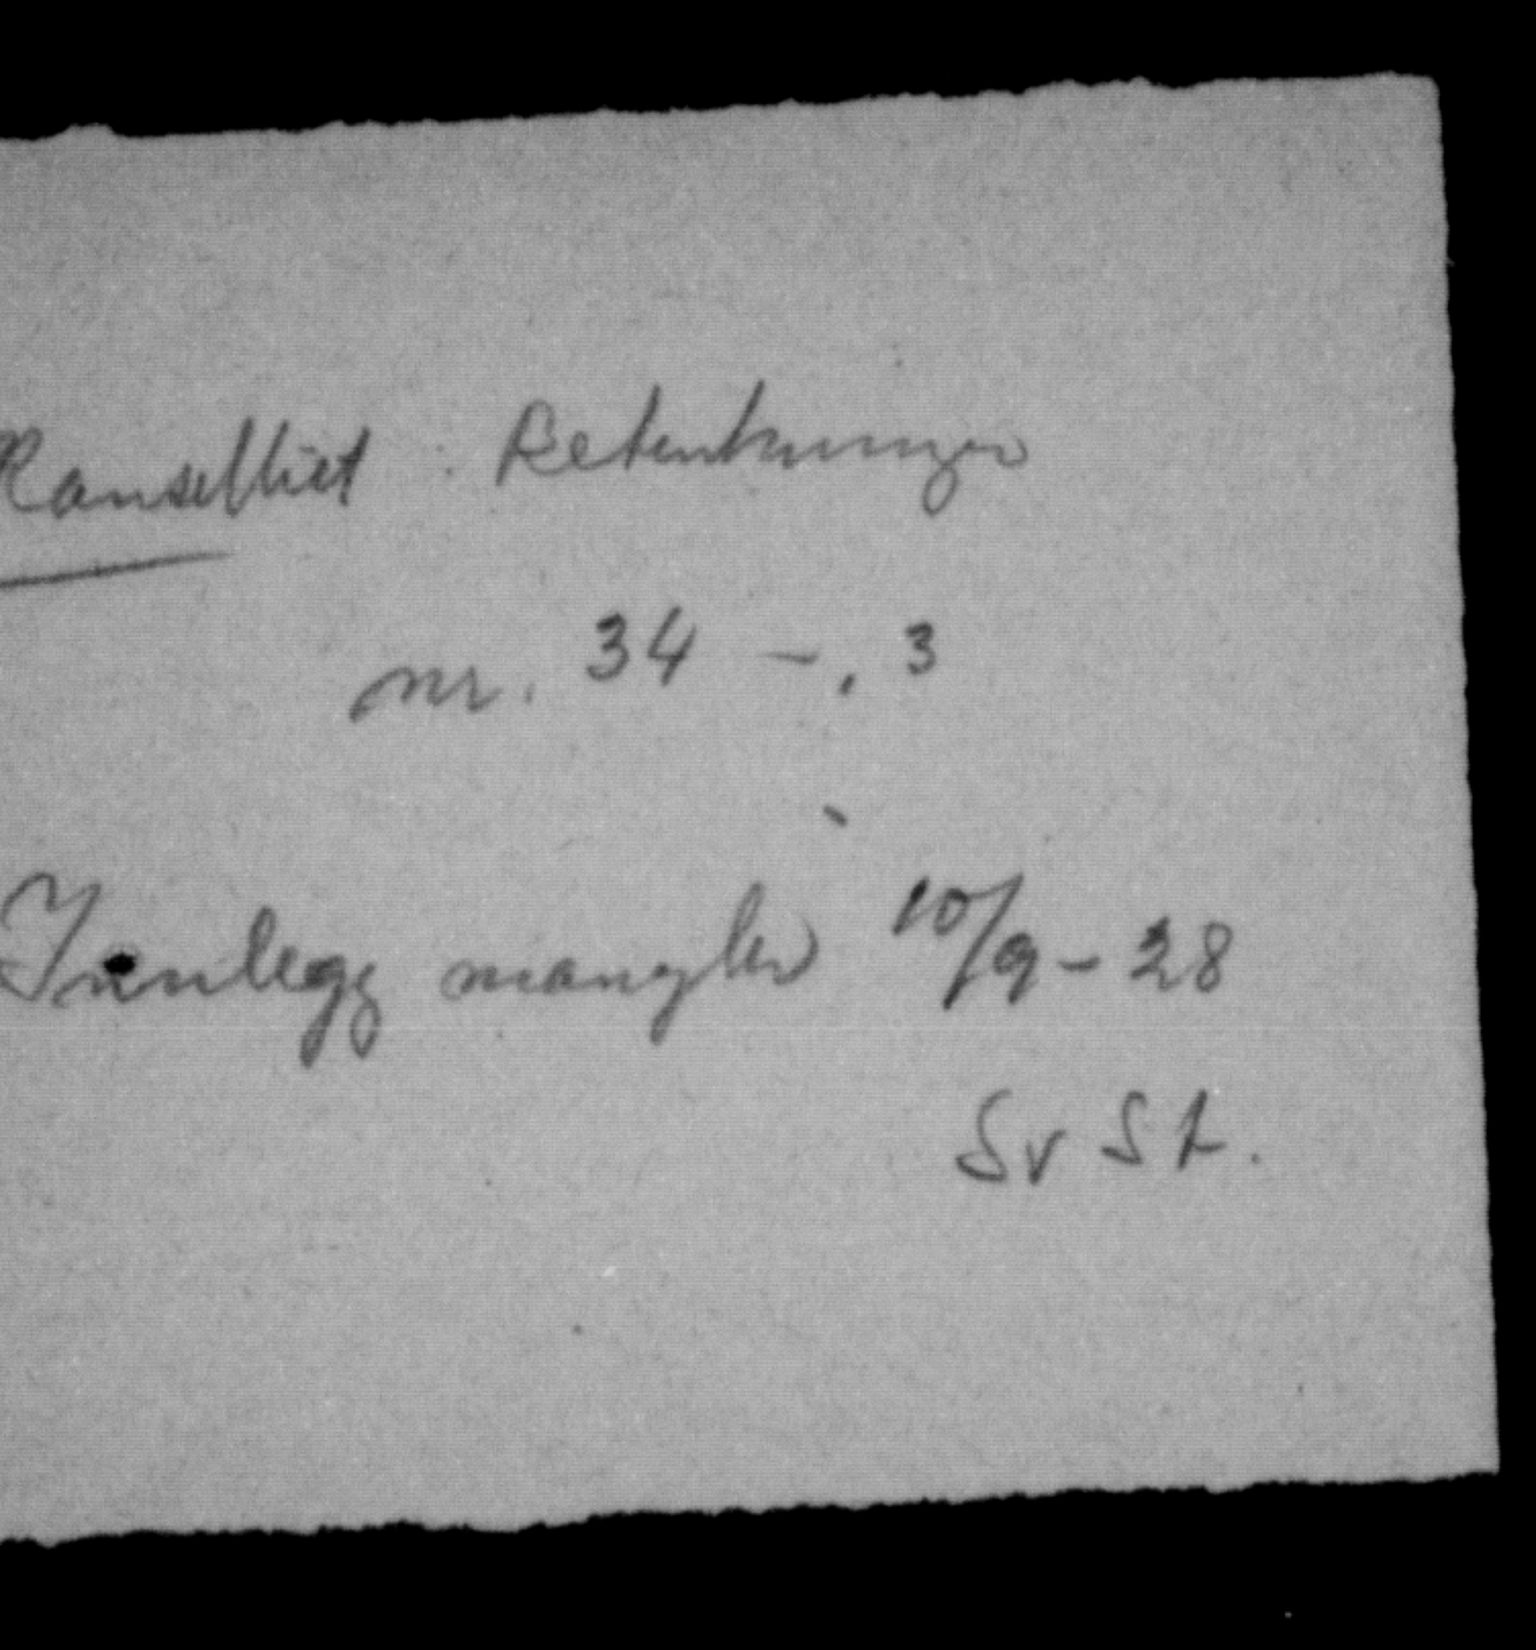 Kanselliet : Betenkninger
nr. 34 - . 3
Innlegg mangler 10/9 - 28
Sv St.